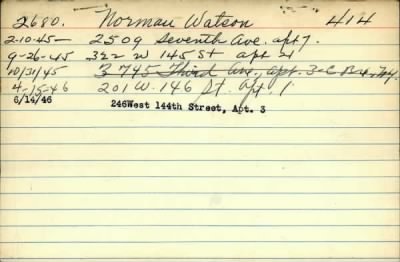 2680. Norman Watson 414
2-10-45- 2509 Seventh Ave. apt 7.
9-26-45 322 W 145 St apt 21
10/31/45 3745 Third Ave., apt. 3-C Bx. N.Y.
4-15-46 201 W. 146 St. Apt. 1
6/14/46 246West 144th Street, Apt. 3